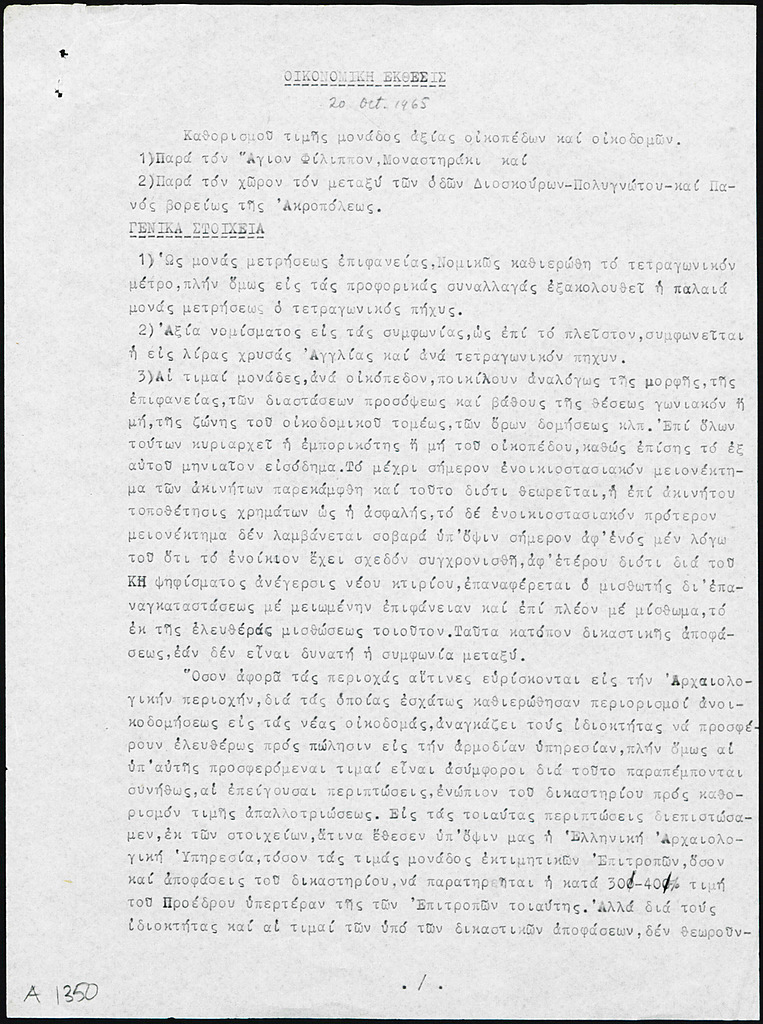 ΟΙΚΟΝΟΜΙΚΗ ΕΚΘΕΣΙΣ
20 Oct. 1965
Καθορισμοῦ τιμῆς μονάδος ἀξίας οἰκοπέδων καί οἰκοδομῶν.
1)Παρά τόν Ἅγιον Φίλιππον,Μοναστηράκι καί
2)Παρά τόν χῶρον τόν μεταξύ τῶν ὁδῶν Διοσκούρων-Πολυγνώτου-καί Πα-
νός βορείως τῆς Ἀκροπόλεως.
ΓΕΝΙΚΑ ΣΤΟΙΧΕΙΑ
1)Ὡς μονάς μετρήσεως ἐπιφανείας,Νομικῶς καθιερώθη τό τετραγωνικόν
μέτρο,πλήν ὅμως εἰς τάς προφορικάς συναλλαγάς ἐξακολουθεῖ ἡ παλαιά
μονάς μετρήσεως ὁ τετραγωνικός πήχυς.
2)Ἀξία νομίσματος εἰς τάς συμφωνίας,ὡς ἐπί τό πλεῖστον,συμφωνεῖται
ἡ εἰς λίρας χρυσάς Ἀγγλίας καί ἀνά τετραγωνικόν πηχυν.
3)Αἱ τιμαί μονάδες,ἀνά οἰκόπεδον,ποικίλουν ἀναλόγως τῆς μορφῆς,τῆς
ἐπιφανείας,τῶν διαστάσεων προσόψεως καί βάθους τῆς θέσεως γωνιακόν ἤ
μή,τῆς ζώνης τοῦ οἰκοδομικοῦ τομέως,τῶν ὅρων δομήσεως κλπ.Ἐπί ὅλων
τούτων κυριαρχεῖ ἡ ἐμπορικότης ἤ μή τοῦ οἰκοπέδου,καθώς ἐπίσης τό ἐξ
αὐτοῦ μηνιαῖον εἰσόδημα.Τό μέχρι σήμερον ἐνοικιοστασιακόν μειονέκτη-
μα τῶν ἀκινήτων παρεκάμφθη καί τοῦτο διότι θεωρεῖται,ἡ ἐπί ἀκινήτου
τοποθέτησις χρημάτων ὡς ἡ ἀσφαλής,τό δέ ἐνοικιοστασιακόν πρότερον
μειονέκτημα δέν λαμβάνεται σοβαρά ὑπ'ὄψιν σήμερον ἀφ'ἑνός μέν λόγω
τοῦ ὅτι τό ἐνοίκιον ἔχει σχεδόν συγχρονισθῆ,ἀφ'ἑτέρου διότι διά τοῦ
ΚΗ ψηφίσματος ἀνέγερσις νέου κτιρίου,ἐπαναφέρεται ὁ μισθωτής δι'ἐπα-
ναγκαταστάσεως μέ μειωμένην ἐπιφάνειαν καί ἐπί πλέον μέ μίσθωμα,τό
ἐκ τῆς ἐλευθέρας μισθώσεως τοιοῦτον.Ταῦτα κατόπον δικαστικῆς ἀποφά-
σεως,ἐάν δέν εἶναι δυνατή ἡ συμφωνία μεταξύ.
Ὅσον ἀφορᾶ τάς περιοχάς αἵτινες εὑρίσκονται εἰς τήν Ἀρχαιολο-
γικήν περιοχήν,διά τάς ὁποίας ἐσχάτως καθιερώθησαν περιορισμοί ἀνοι-
κοδομήσεως εἰς τάς νέας οἰκοδομάς,ἀναγκάζει τούς ἰδιοκτήτας νά προσφέ-
ρουν ἐλευθέρως πρός πώλησιν εἰς τήν ἁρμοδίαν ὑπηρεσίαν,πλήν ὅμως αἱ
ὑπ'αὐτῆς προσφερόμεναι τιμαί εἶναι ἀσύμφοροι διά τοῦτο παραπέμπονται
συνήθως,αἱ ἐπείγουσαι περιπτώσεις,ἐνώπιον τοῦ δικαστηρίου πρός καθο-
ρισμόν τιμῆς ἀπαλλοτριώσεως. Εἰς τάς τοιαύτας περιπτώσεις διεπιστώσα-
μεν,ἐκ τῶν στοιχείων,ἅτινα ἔθεσεν ὑπ'ὄψιν μας ἡ Ἑλληνική Ἀρχαιολο-
γική Ὑπηρεσία,τόσον τάς τιμάς μονάδος ἐκτιμητικῶν Ἐπιτροπῶν,ὅσον
καί ἀποφάσεις τοῦ δικαστηρίου,νά παρατηρεῆται ἡ κατά 30-40% τιμή
τοῦ Προέδρου ὑπερτέραν τῆς τῶν Ἐπιτροπῶν τοιαύτης.Ἀλλά διά τούς
ἰδιοκτήτας καί αἱ τιμαί τῶν ὑπό τῶν δικαστικῶν ἀποφάσεων,δέν θεωροῦν-
./.
A 1350